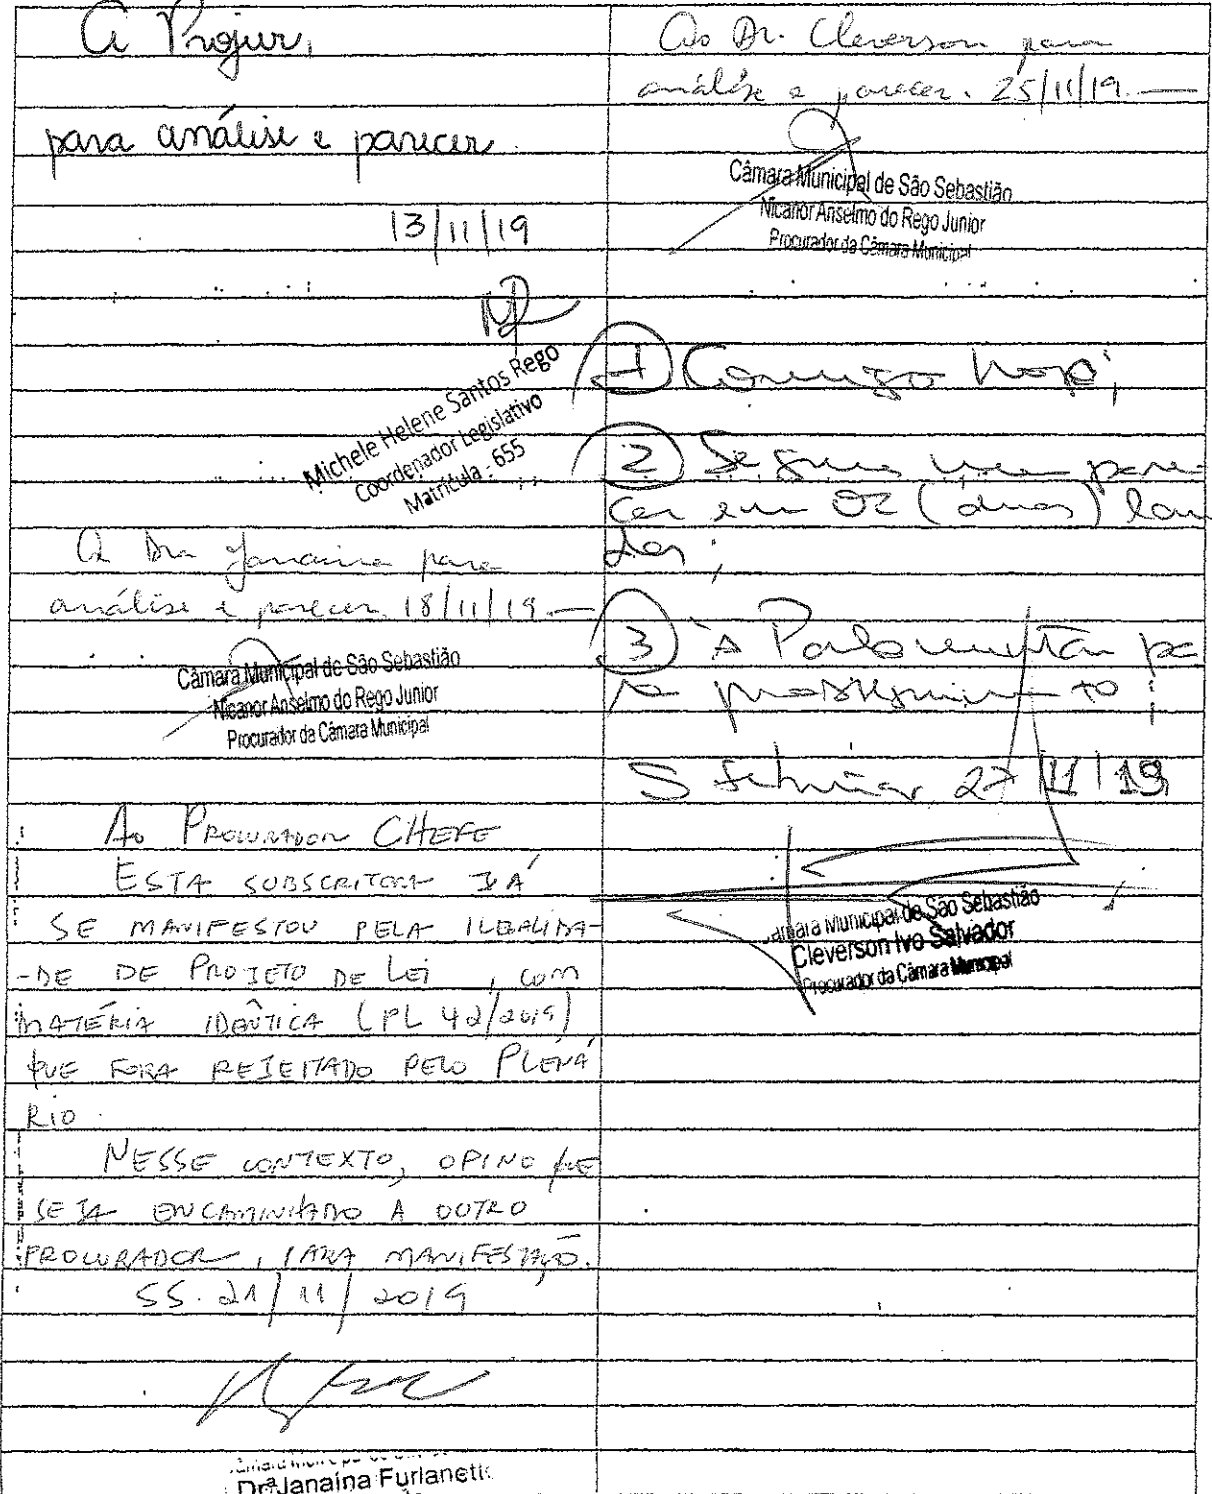 A Projur,
para análise e parecer.
13/11/19
Michele Helene Santos Rego
Coordenador Legislativo
Matrícula - 655
A Dra Janaina para
análise e parecer. 18/11/19.—
Câmara Municipal de São Sebastião
Nicanor Anselmo do Rego Junior
Procurador da Câmara Municipal
Ao PROCURADOR CHEFE
ESTA SUBSCRITORA JÁ
SE MANIFESTOU PELA ILEGALIDA-
-DE DE PROJETO DE LEI, COM
MATÉRIA IDÊNTICA (PL 42/2019)
QUE FORA REJEITADO PELO PLENÁ
RIO.
NESSE CONTEXTO, OPINO QUE
SEJA ENCAMINHADO A OUTRO
PROCURADOR, PARA MANIFESTAÇÃO.
SS. 21/11/2019
Drª Janaina Furlanetto
Ao Dr. Cleverson para
análise e parecer. 25/11/19.—
Câmara Municipal de São Sebastião
Nicanor Anselmo do Rego Junior
Procurador da Câmara Municipal
1 Comigo hoje;
2 Segue meu pare-
cer em 02 (duas) lau
das;
3 À Parlamentar pa
ra prosseguimento;
S Sebastião, 27/11/19
Câmara Municipal de São Sebastião
Cleverson Ivo Salvador
Procurador da Câmara Municipal